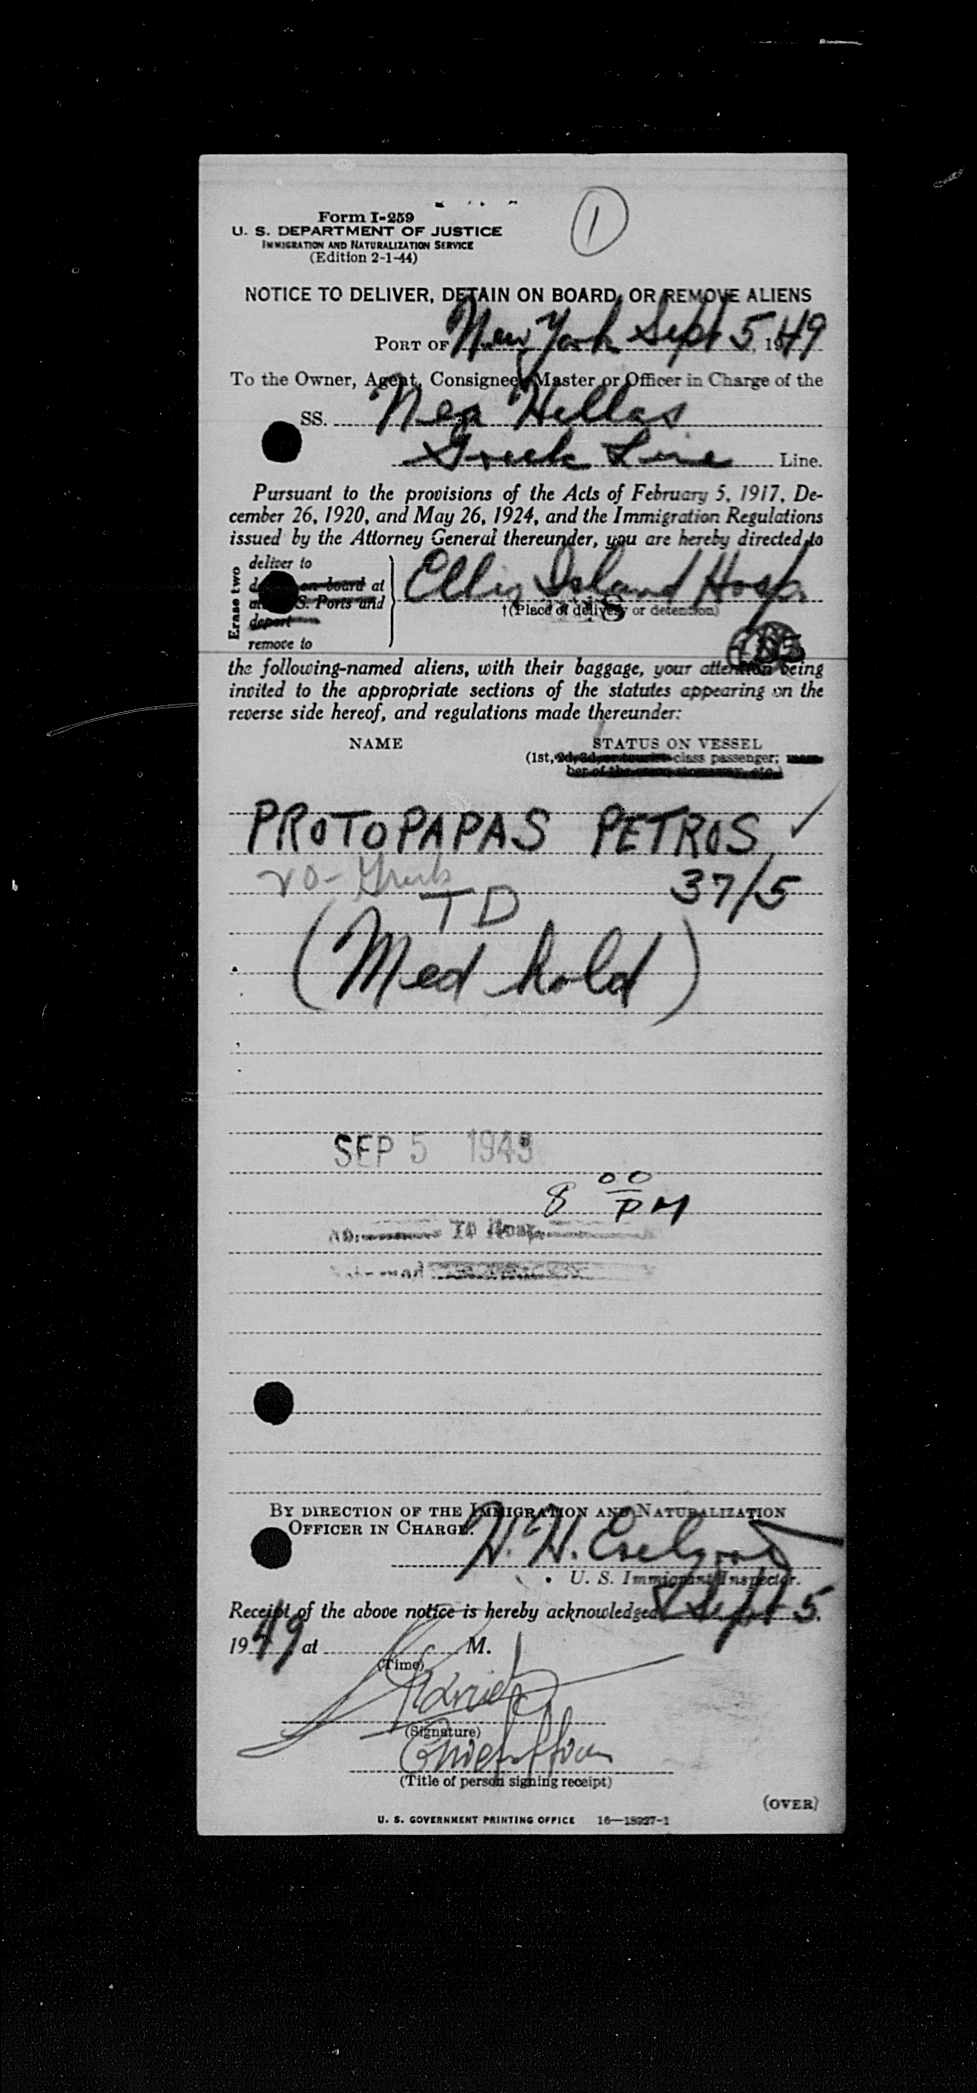 1
Form I-259
U. S. DEPARTMENT OF JUSTICE
IMMIGRATION AND NATURALIZATION SERVICE
(Edition 2-1-44)
NOTICE TO DELIVER, DETAIN ON BOARD, OR REMOVE ALIENS
PORT OF New York Sept 5, 1949
To the Owner, Agent, Consignee, Master or Officer in Charge of the
SS. Nea Hellas
Greek Line Line.
Pursuant to the provisions of the Acts of February 5, 1917, De-
cember 26, 1920, and May 26, 1924, and the Immigration Regulations
issued by the Attorney General thereunder, you are hereby directed to
Erase two
deliver to
on board at
S. Ports and
deport
remove to
Ellis Island Hosp.
†(Place of delivery or detention)
the following-named aliens, with their baggage, your attention being
invited to the appropriate sections of the statutes appearing on the
reverse side hereof, and regulations made thereunder:
NAME STATUS ON VESSEL
(1st, 2d, 3d, or tourist class passenger; mem-
ber of the crew, stowaway, etc.)
PROTOPAPAS PETROS ✓
37/5
TD
(Med hold)
SEP 5 1949
8 00 PM
To Hosp.
BY DIRECTION OF THE IMMIGRATION AND NATURALIZATION
OFFICER IN CHARGE:
H. H.
U. S. Immigrant Inspector.
Receipt of the above notice is hereby acknowledged Sept 5,
1949 at M.
(Time)
(Signature)
Chief
(Title of person signing receipt)
(OVER)
U. S. GOVERNMENT PRINTING OFFICE 16—18227-1